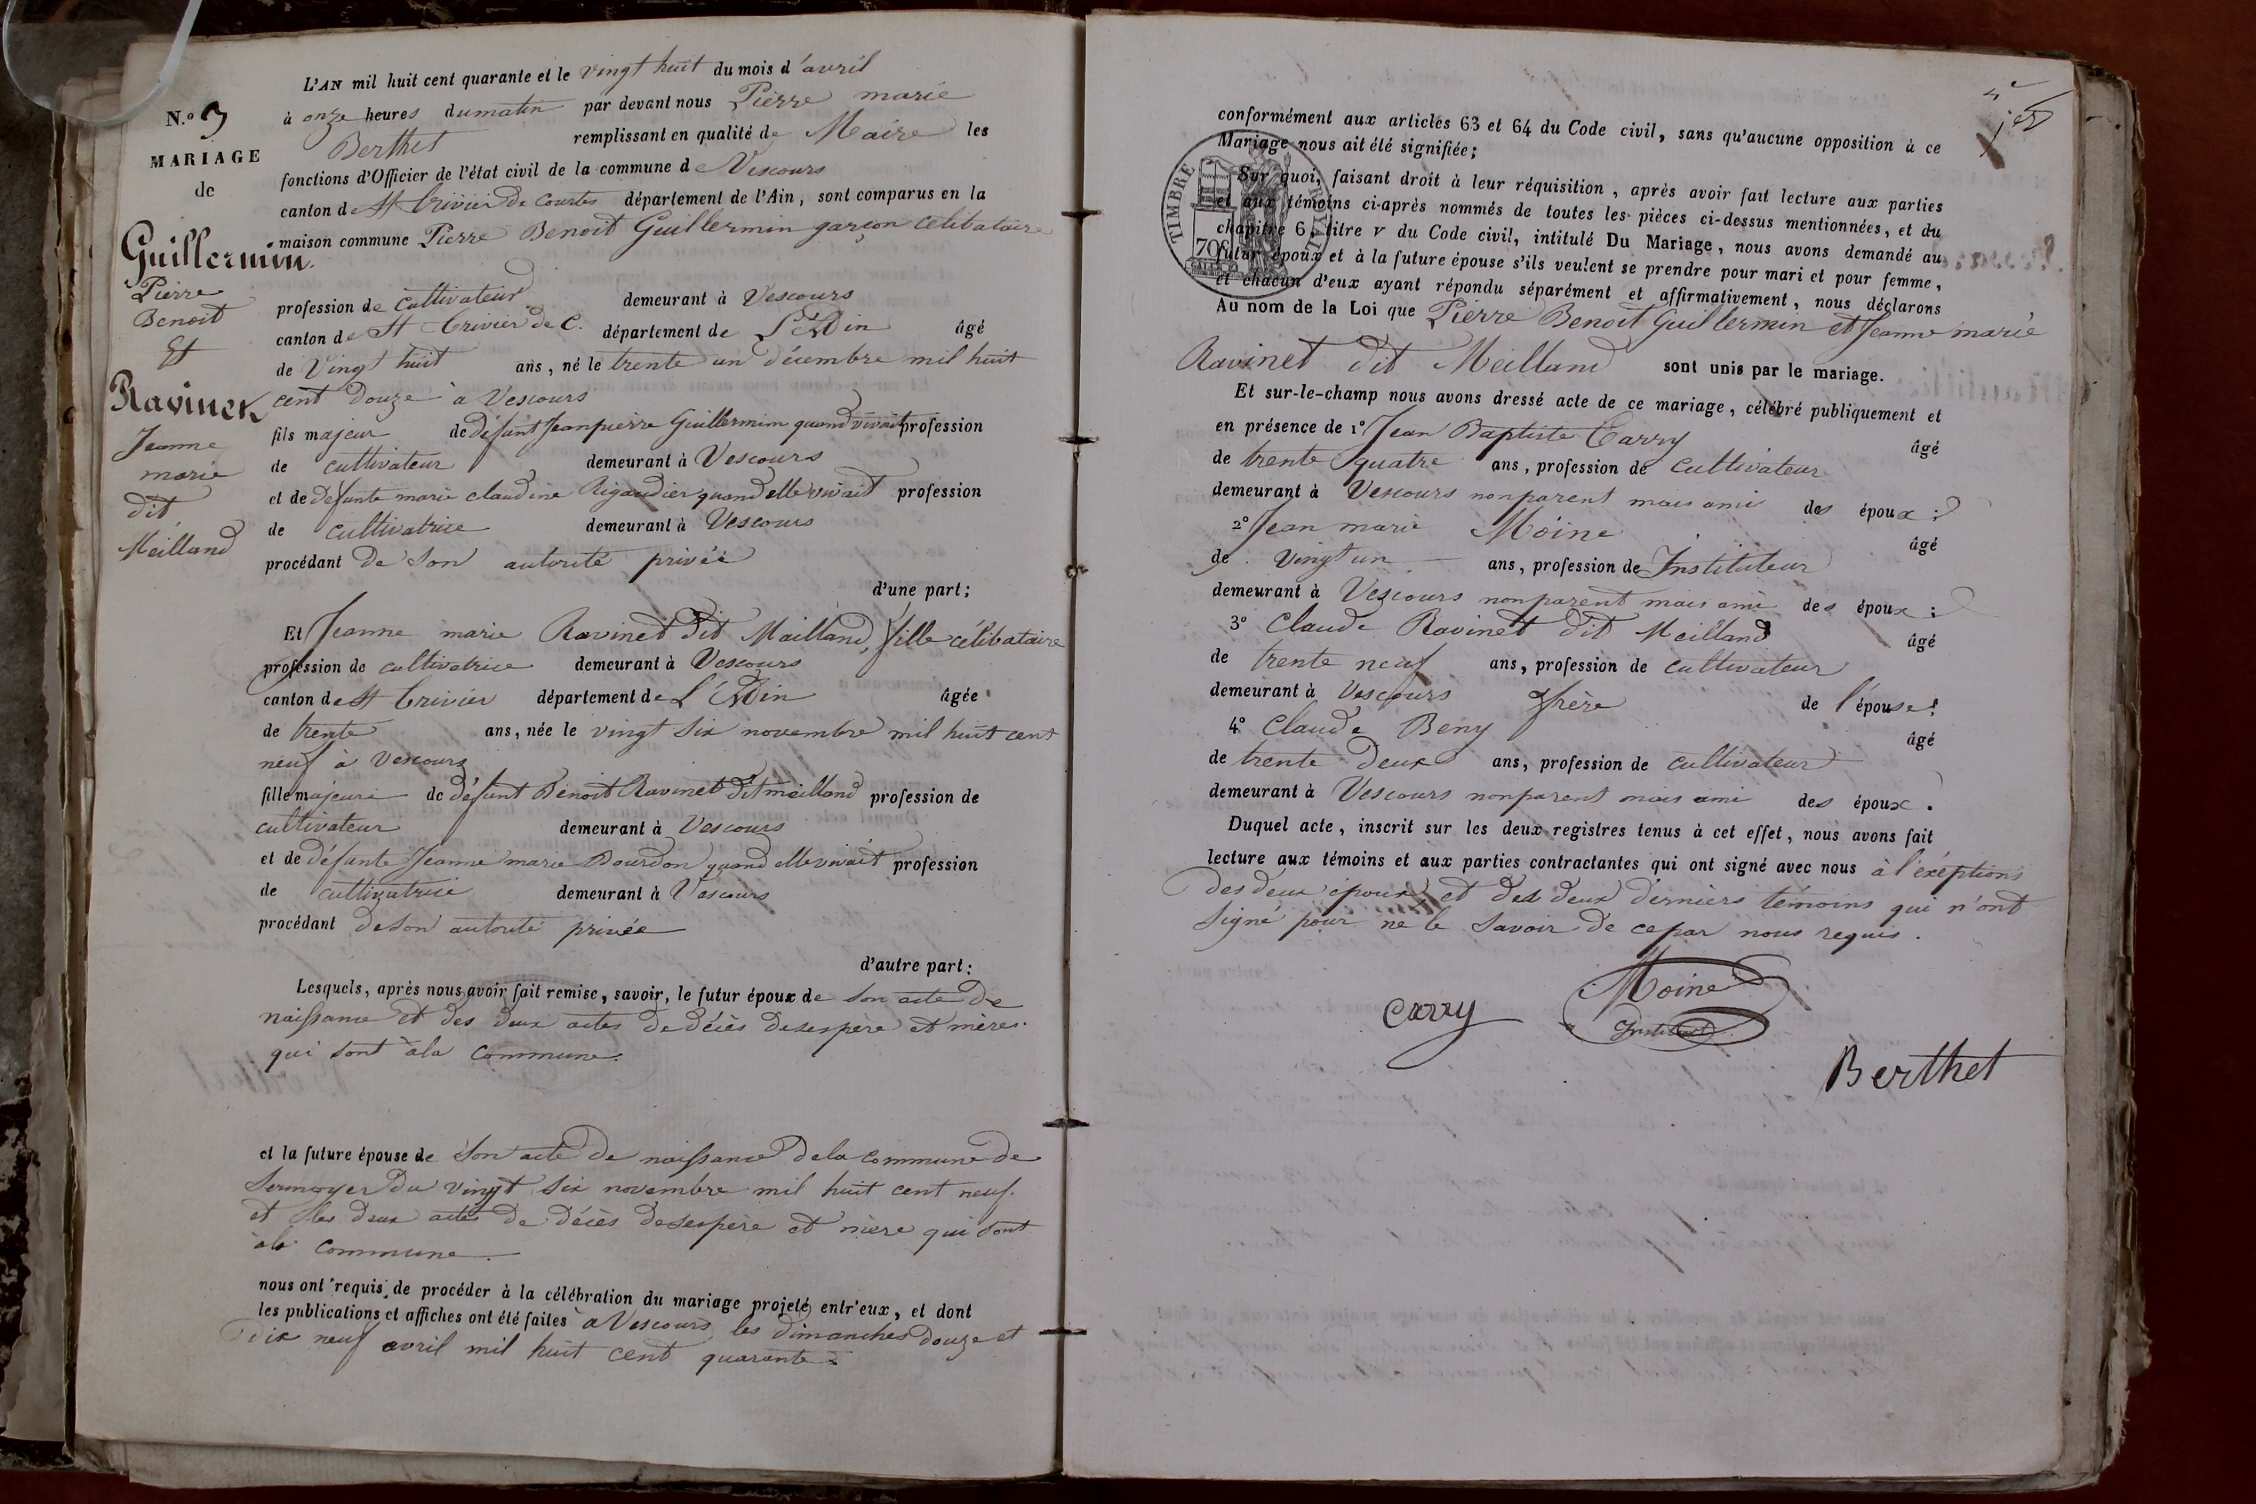 L'AN mil huit cent quarante et le vingt huit du mois d'avril
à onze heures du matin par devant nous Pierre marie
Berthet remplissant en qualité de Maire les
fonctions d'Officier de l'état civil de la commune de Vescours
canton de St Trivier de Courtes département de l'Ain, sont comparus en la
maison commune Pierre Benoit Guillermin garçon célibataire
profession de cultivateur demeurant à Vescours
canton de St Trivier de C. département de L'Ain âgé
de Vingt huit ans, né le trente un décembre mil huit
cent douze à Vescours
fils majeur de défunt Jean pierre Guillermin quand vivait profession
de cultivateur demeurant à Vescours
et de défunte marie claudine Rigaudier quand elle vivait profession
de cultivatrice demeurant à Vescours
procédant de son autorité privée
d'une part;
N.o 3
MARIAGE
de
Guillermin.
Pierre
Benoit
Et
Ravinet
Jeanne
marie
dit
Meilland
Et Jeanne marie Ravinet dit Mailland, fille célibataire
profession de cultivatrice demeurant à Vescours
canton de St Trivier département de L'Ain âgée
de trente ans, née le vingt six novembre mil huit cent
neuf à Vescours
fille majeure de défunt Benoit Ravinet dit meilland profession de
cultivateur demeurant à Vescours
et de défunte Jeanne marie Bourdon quand elle vivait profession
de cultivatrice demeurant à Vescours
procédant de son autorité privée
d'autre part:
Lesquels, après nous avoir fait remise, savoir, le futur époux de son acte de
naissance et des deux actes de décès de ses père et mères.
qui sont à la commune.
et la future épouse de son acte de naissance de la commune de
Sermoyer du vingt six novembre mil huit cent neuf.
et des deux actes de décès de ses père et mère qui sont
à la commune.
nous ont requis de procéder à la célébration du mariage projeté entr'eux, et dont
les publications et affiches ont été faites à Vescours les dimanches douze et
dix neuf avril mil huit cent quarante.
conformément aux articles 63 et 64 du Code civil, sans qu'aucune opposition à ce
Mariage nous ait été signifiée;
Sur quoi, faisant droit à leur réquisition, après avoir fait lecture aux parties
et aux témoins ci-après nommés de toutes les pièces ci-dessus mentionnées, et du
chapitre 6, titre v du Code civil, intitulé Du Mariage, nous avons demandé au
futur époux et à la future épouse s'ils veulent se prendre pour mari et pour femme,
et chacun d'eux ayant répondu séparément et affirmativement, nous déclarons
Au nom de la Loi que Pierre Benoit Guillermin et Jeanne marie
Ravinet dit Meilland sont unis par le mariage.
TIMBRE ROYAL
70c
Et sur-le-champ nous avons dressé acte de ce mariage, célébré publiquement et
en présence de 1° Jean Baptiste Carry âgé
de trente quatre ans, profession de cultivateur
demeurant à Vescours non parent mais ami des époux;
2° Jean marie Moine âgé
de vingt un ans, profession de Instituteur
demeurant à Vescours non parent mais ami des époux;
3° Claude Ravinet dit Meilland âgé
de trente neuf ans, profession de cultivateur
demeurant à Vescours frère de l'épouse;
4° Claude Beny âgé
de trente deux ans, profession de cultivateur
demeurant à Vescours non parent mais ami des époux.
Duquel acte, inscrit sur les deux registres tenus à cet effet, nous avons fait
lecture aux témoins et aux parties contractantes qui ont signé avec nous à l'éxéptions
des deux époux et des deux derniers témoins qui n'ont
signé pour ne le savoir de ce par nous requis.
Carry
Moine
Instituteur
Berthet